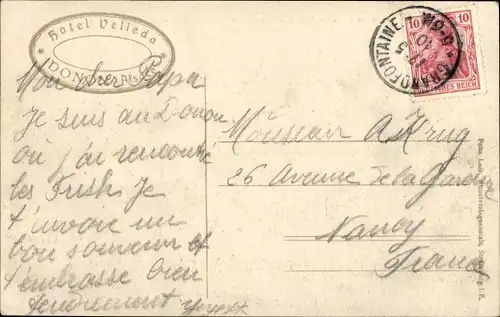 Hotel Velleda
DONON
Mon cher Papa
Je suis au Donon
où j'ai rencontré
les Frish Je
t'envoie un
bon souvenir et
t'embrasse bien
tendrement
10 10
DEUTSCHES REICH
GRANDFONTAINE
Monsieur A Krug
26 Avenue de la Garenne
Nancy
France